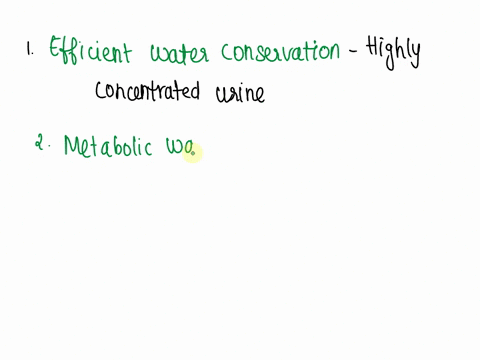 1. Efficient water conservation - Highly
concentrated urine
2. Metabolic wa